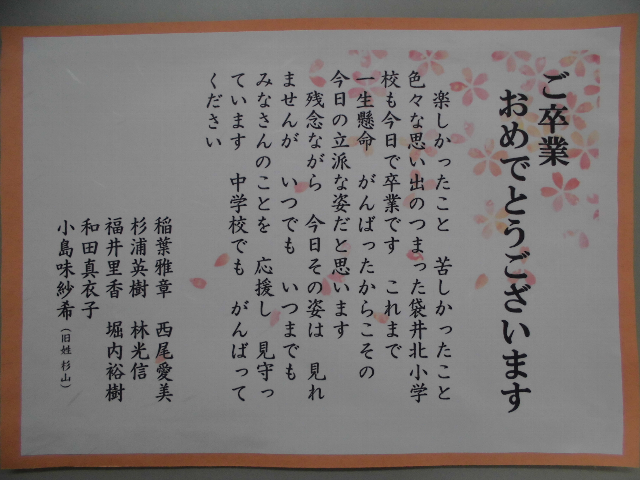 ご卒業
おめでとうございます
楽しかったこと　苦しかったこと
色々な思い出のつまった袋井北小学
校も今日で卒業です　これまで
一生懸命　がんばったからこその
今日の立派な姿だと思います
残念ながら　今日その姿は　見れ
ませんが　いつでも　いつまでも
みなさんのことを　応援し　見守っ
ています　中学校でも　がんばって
ください
稲葉雅章　西尾愛美
杉浦英樹　林光信
福井里香　堀内裕樹
和田真衣子
小島味紗希（旧姓 杉山）